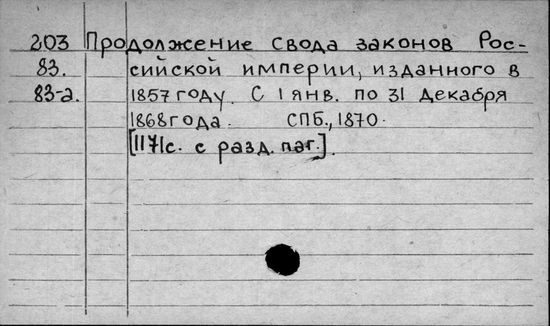 203 Продолжение свода законов Рос-
83. сийской империи, изданного в
83-а. 1857 году. С 1 янв. по 31 декабря
1868 года. СПБ., 1870.
[1171с. с разд. паг.].